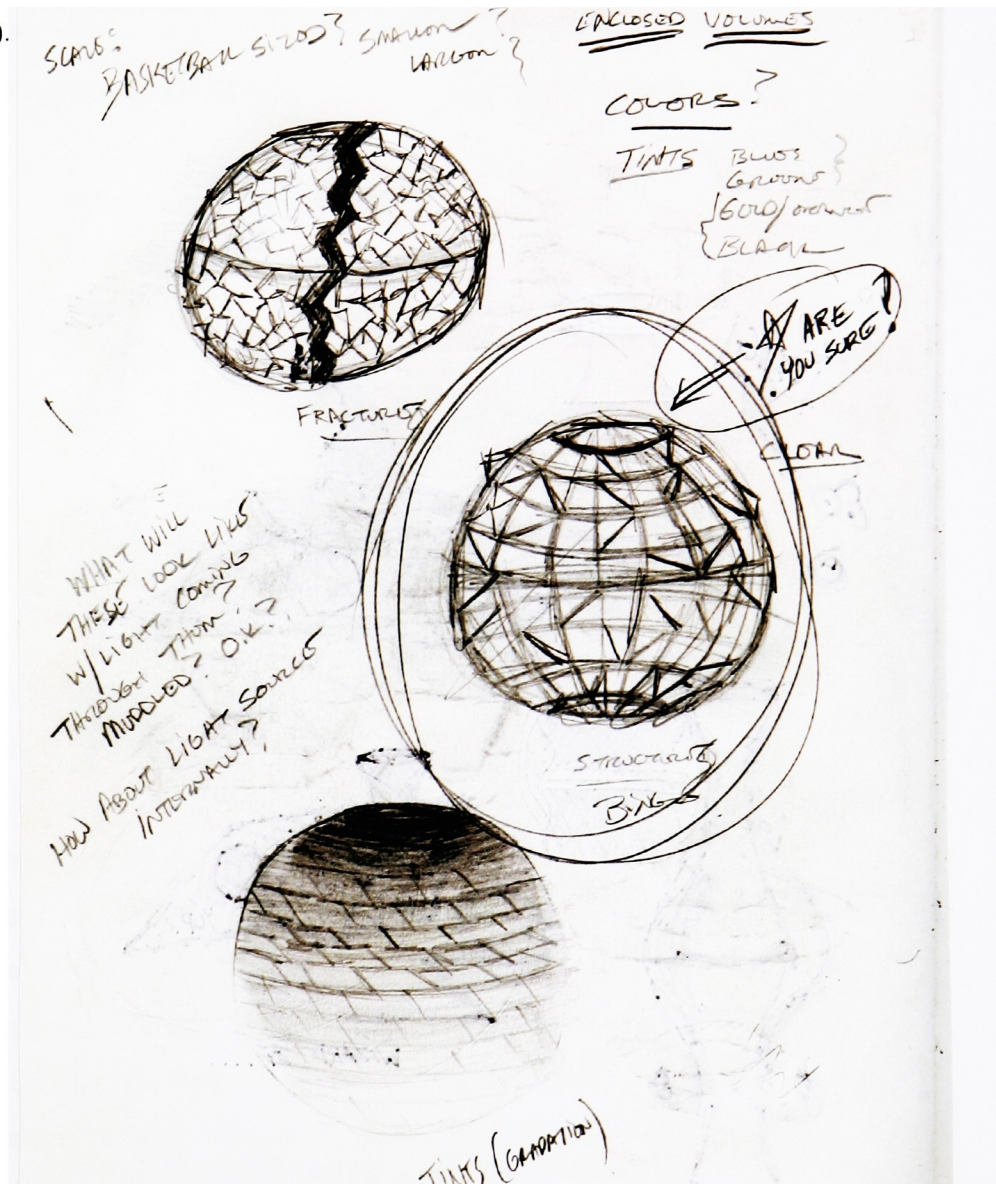 SCALE:
BASKETBALL SIZED? SMALLER?
LARGER?
ENCLOSED VOLUMES
COLORS?
TINTS BLUES
GREENS
GOLD/
BLACK
ARE
YOU SURE?
FRACTURES
CLEAR
WHAT WILL
THESE LOOK LIKE
W/LIGHT COMING
THROUGH THEM?
MUDDLED? O.K.?
HOW ABOUT LIGHT SOURCES
INTERNALLY?
STRUCTURES
BINGO
TINTS (GRADATION)